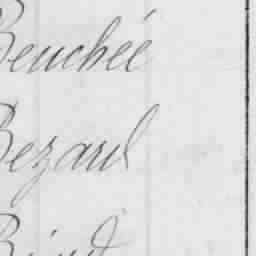 Beuchée
Bezard